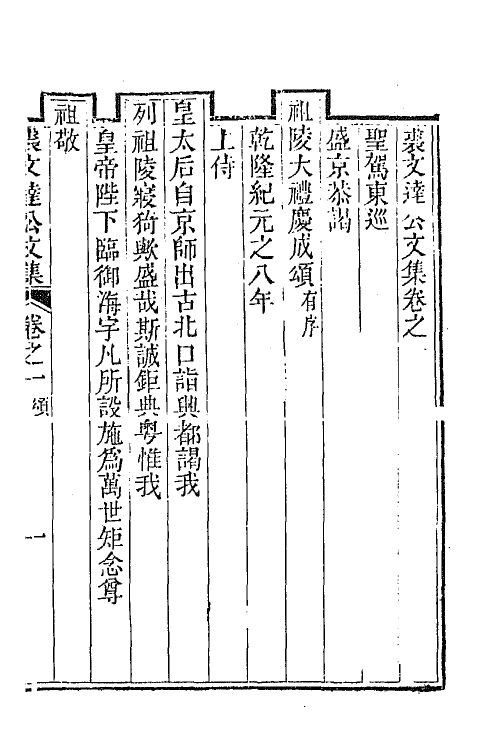 裘文達公文集卷之一
聖駕東巡
盛京恭謁
祖陵大禮慶成頌有序
乾隆紀元之八年
上侍
皇太后自京師出古北口詣興都謁我
列祖陵寢猗歟盛哉斯誠鉅典粵惟我
皇帝陛下臨御海宇凡所設施為萬世矩念尊
祖敬
裘文達公文集 卷之一 頌 一